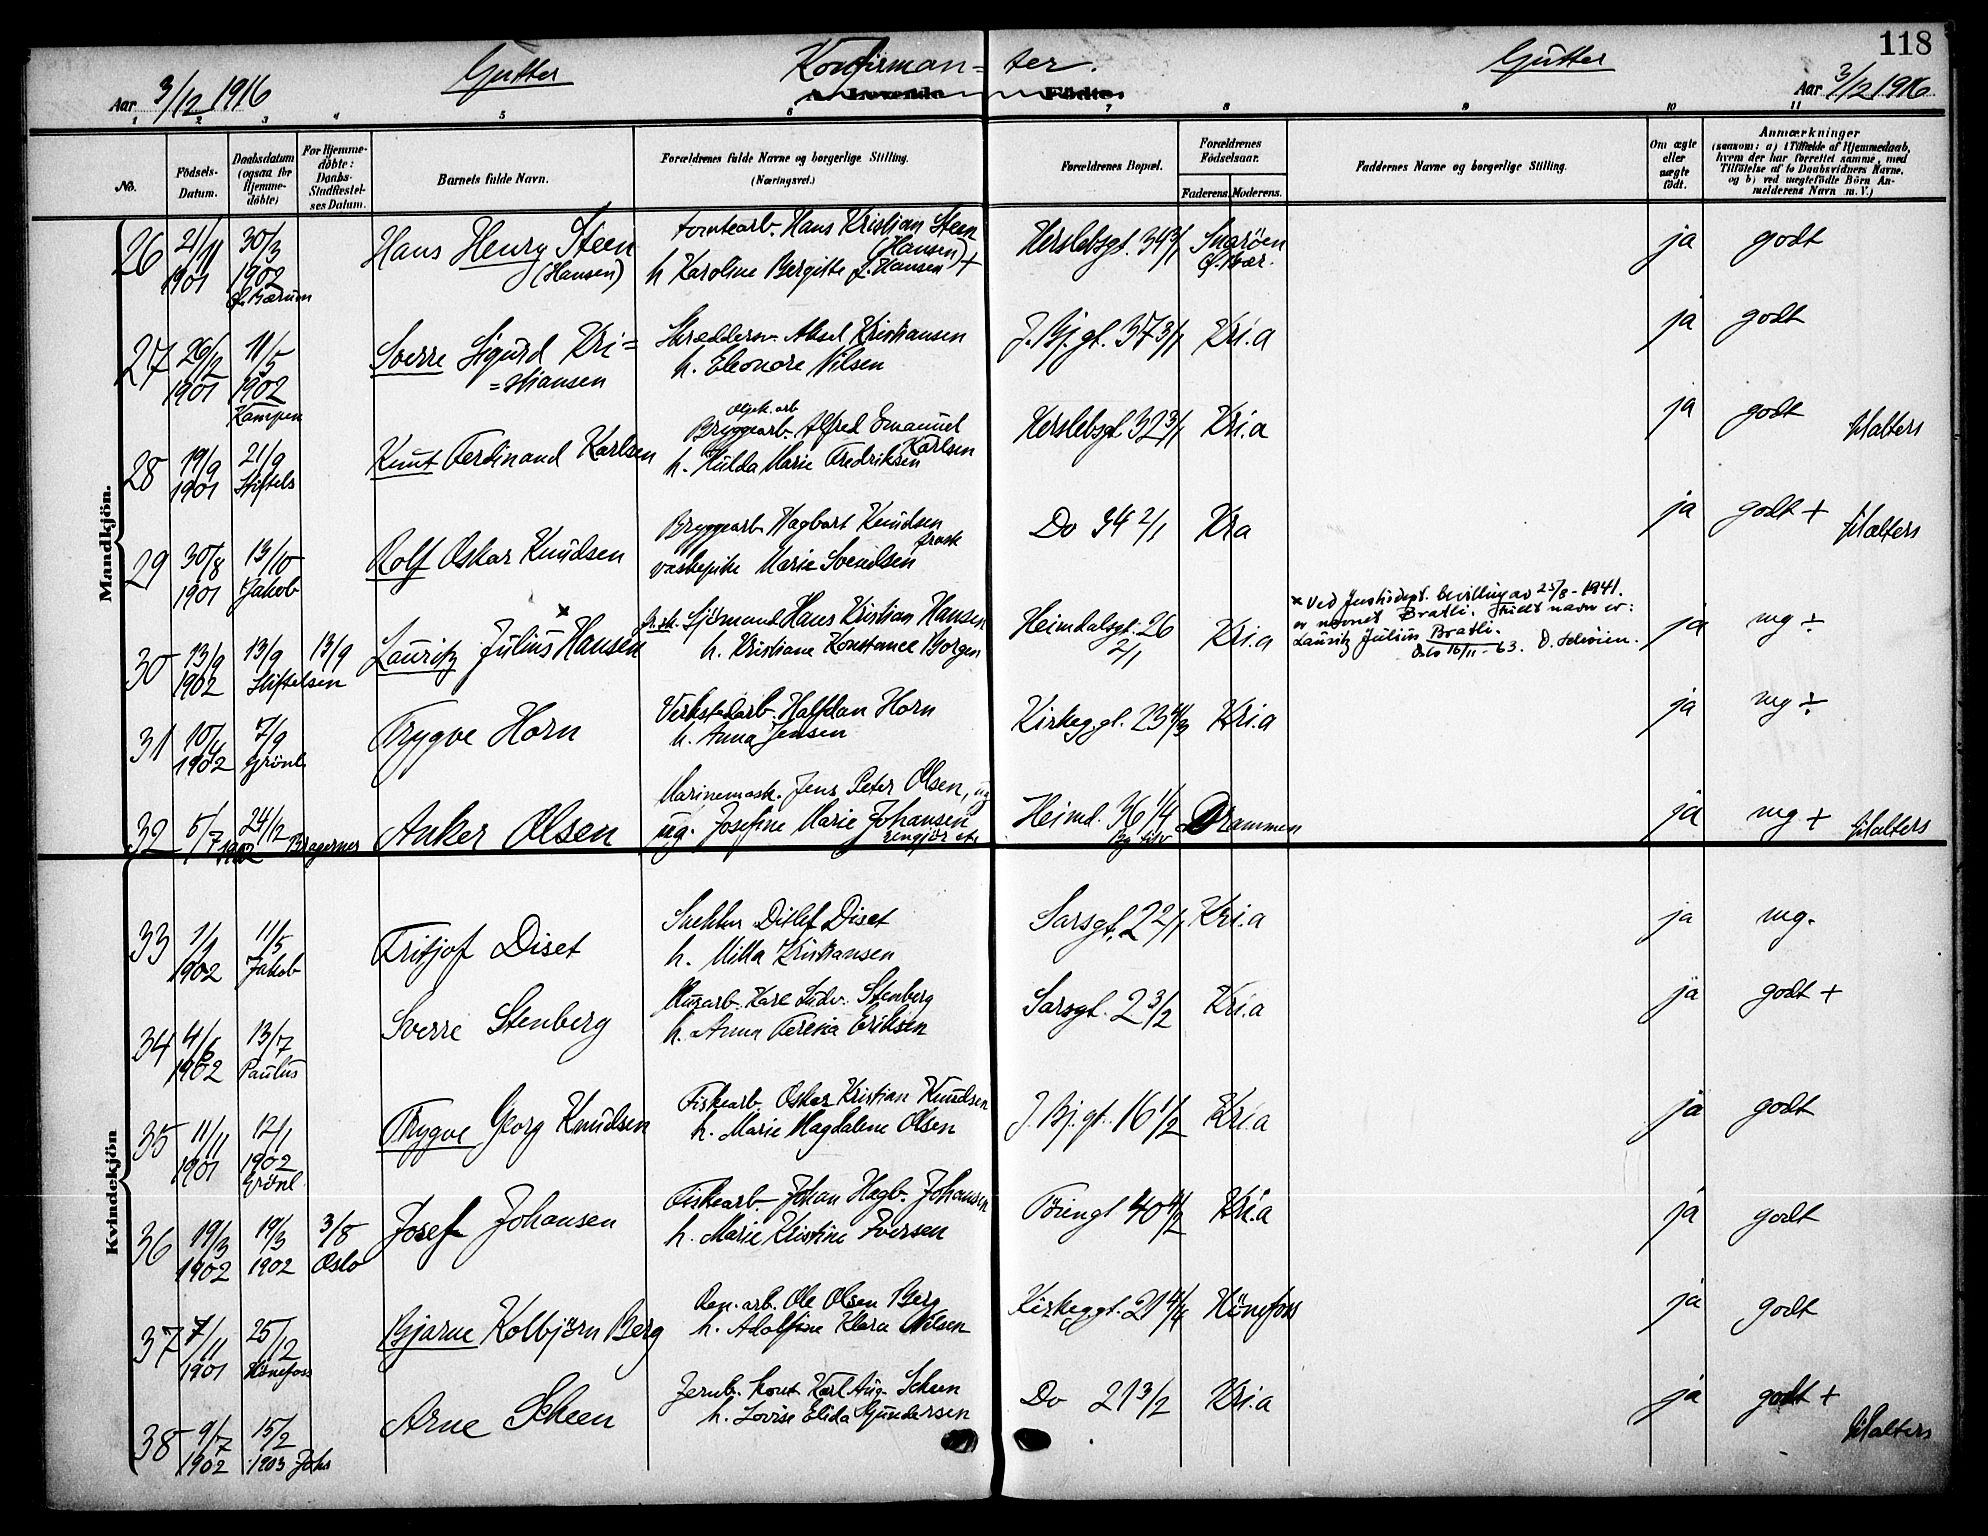 118
Gutter Konfirman=ter. Gutter
Aar 3/12 1916 A. Levende Fødte. Aar 3/12 1916
1 2 3 4 5 6 7 8 9 10 11
No. Fødsels-Datum. Daabsdatum (ogsaa for Hjemme-døbte) For Hjemme-døbte: Daabs-Stadfæstel-ses Datum. Barnets fulde Navn. Forældrenes fulde Navne og borgerlige Stilling. (Næringsvei.) Forældrenes Bopæl. Forældrenes Fødselsaar. Faderens. Moderens. Faddernes Navne og borgerlige Stilling. Om ægte eller uægte født. Anmærkninger (saasom: a) i Tilfælde af Hjemmedaab, hvem der har forrettet samme, med Tilføielse af to Daabsvidners Navne, og b) ved uægtefødte Børn An-melderens Navn m. V.)
Mandkjön.
26 21/11 1901 30/3 1902 Ø. Bærum Hans Henry Steen (Hansen) tomtearb. Hans Kristian Steen (Hansen)
h. Karoline Bergitte f. Hansen + Herslebsgt. 34 3/1 Snarøen Ø. Bær. ja godt
27 26/12 1901 11/5 1902 Kampen Sverre Sigurd Kri=
=stiansen Skræddersv. Aksel Kristiansen
h. Eleonore Nilsen J. Bj. gt. 37 3/1 Kri.a ja godt
28 19/9 1901 21/9 Stiftels Knut Ferdinand Karlsen Bryggearb. Alfred Emanuel Karlsen
h. Hulda Marie Fredriksen Herslebsgt 32 3/1 Kri.a ja godt Malters
29 30/8 1901 13/10 Jakob Rolf Oskar Knudsen Bryggearb. Hagbart Knudsen
vaskepike Marie Svendsen frask Do 34 2/1 Kra ja godt + Malters
30 13/9 1902 13/9 Stiftelsen 13/9 Lauritz Julius × Hansen Sjömand Hans Kristian Hansen
h. Kristiane Konstance Borgen Heimdalsgt. 26 2/1 Kri.a
× Ved Justisdept. bevilling av 25/8-1941.
er navnet Bratli. Fuldt navn er:
Lauritz Julius Bratli.
Oslo 16/11-63. O. Schöien. ja mg ÷
31 10/4 1902 7/9 Grönl Trygve Horn Verkstedarb. Halfdan Horn
h. Anna Jensen Kirkeg.gt. 23 4/3 Kri.a ja mg ÷
32 5/7 1902 24/12 Bragernes Anker Olsen Marinemask. Jens Peter Olsen, ug
ug. Josefine Marie Johansen Heimd. 36 1/4 Drammen ja mg + Malters
Kvindekjön
33 1/1 1902 11/5 Jakob Fritjof Diset Snekker Ditlef Diset
h. Milla Kristiansen Sarsgt. 2 2/1 Kri.a ja mg.
34 4/6 1902 13/7 Paulus Sverre Stenberg Murarb. Karl Ludv. Stenberg
h. Anna Teresia Eriksen Sarsgt. 2 3/2 Kri.a ja godt +
35 11/11 1901 12/1 1902 Grönl Trygve Georg Knudsen Fiskearb. Oskar Kristian Knudsen
h. Marie Magdalene Olsen J. Bj. gt. 16 1/2 Kri.a ja godt
36 19/3 1902 19/3 1902 3/8 Oslo Josef Johansen Fiskearb. Johan Hagb. Johansen
h. Marie Kristine Iversen 40 4/2 Kri.a ja godt
37 7/11 1901 25/12 Hönefoss Bjarne Kolbjörn Berg Ren.arb. Ole Olsen Berg
h. Adolfine Klara Nilsen Kirkeg.gt. 21 4/4 Hönefoss ja godt
38 9/7 1902 15/2 1903 Johs Arne Scheen Jernb. kont Karl Aug. Scheen
h. Lovise Elida Gundersen Do 21 3/2 Kri.a ja godt + Malters